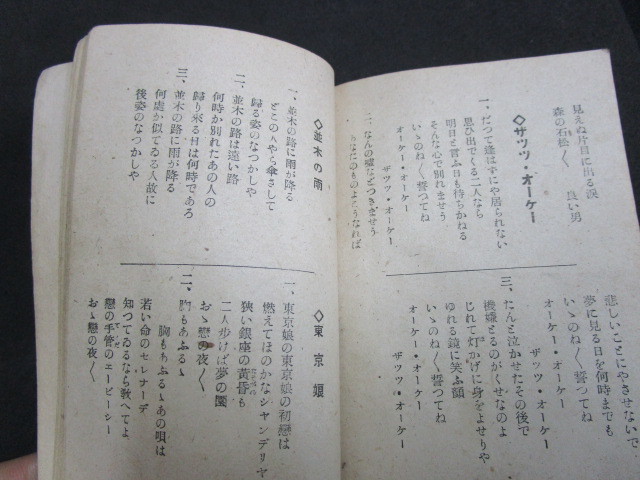 見えぬ片目に出る涙
森の石松〱　良い男
◇ザッツ・オーケー
一、だつて逢はずにや居られない
思ひ出でくる二人なら
明日と言ふ日も待ちかねる
そんな心で別れませう
いゝのねく誓つてね
オーケー・オーケー
ザッツ・オーケー
二、なんの嘘などつきませう
あなたのものよかうなれば
悲しいことにやさせないで
夢に見る日を何時までも
いゝのねく誓つてね
オーケー・オーケー
ザッツ・オーケー
三、たんと泣かせたその後で
機嫌とるのがくせなのよ
じれて灯かげに身をよせりや
ゆれる鏡に笑ふ顔
いゝのねく誓つてね
オーケー・オーケー
ザッツ・オーケー
◇並木の雨
一、並木の路に雨が降る
どこの人やら傘さして
歸る姿のなつかしや
二、並木の路は遠い路
何時か別れたあの人の
歸り來る日は何時であろ
三、並木の路に雨が降る
何處か似てゐる人故に
後姿のなつかしや
◇東京娘
一、東京娘の東京娘の初戀は
燃えてほのかなシャンデリヤ
狹い銀座の黃昏も
二人歩けば夢の園
おゝ戀の夜〱
二、胸もあふるゝ
胸もあふるゝあの唄は
若い命のセレナーデ
知つてゐるなら敎へてよ
戀の手管のエービーシー
おゝ戀の夜〱